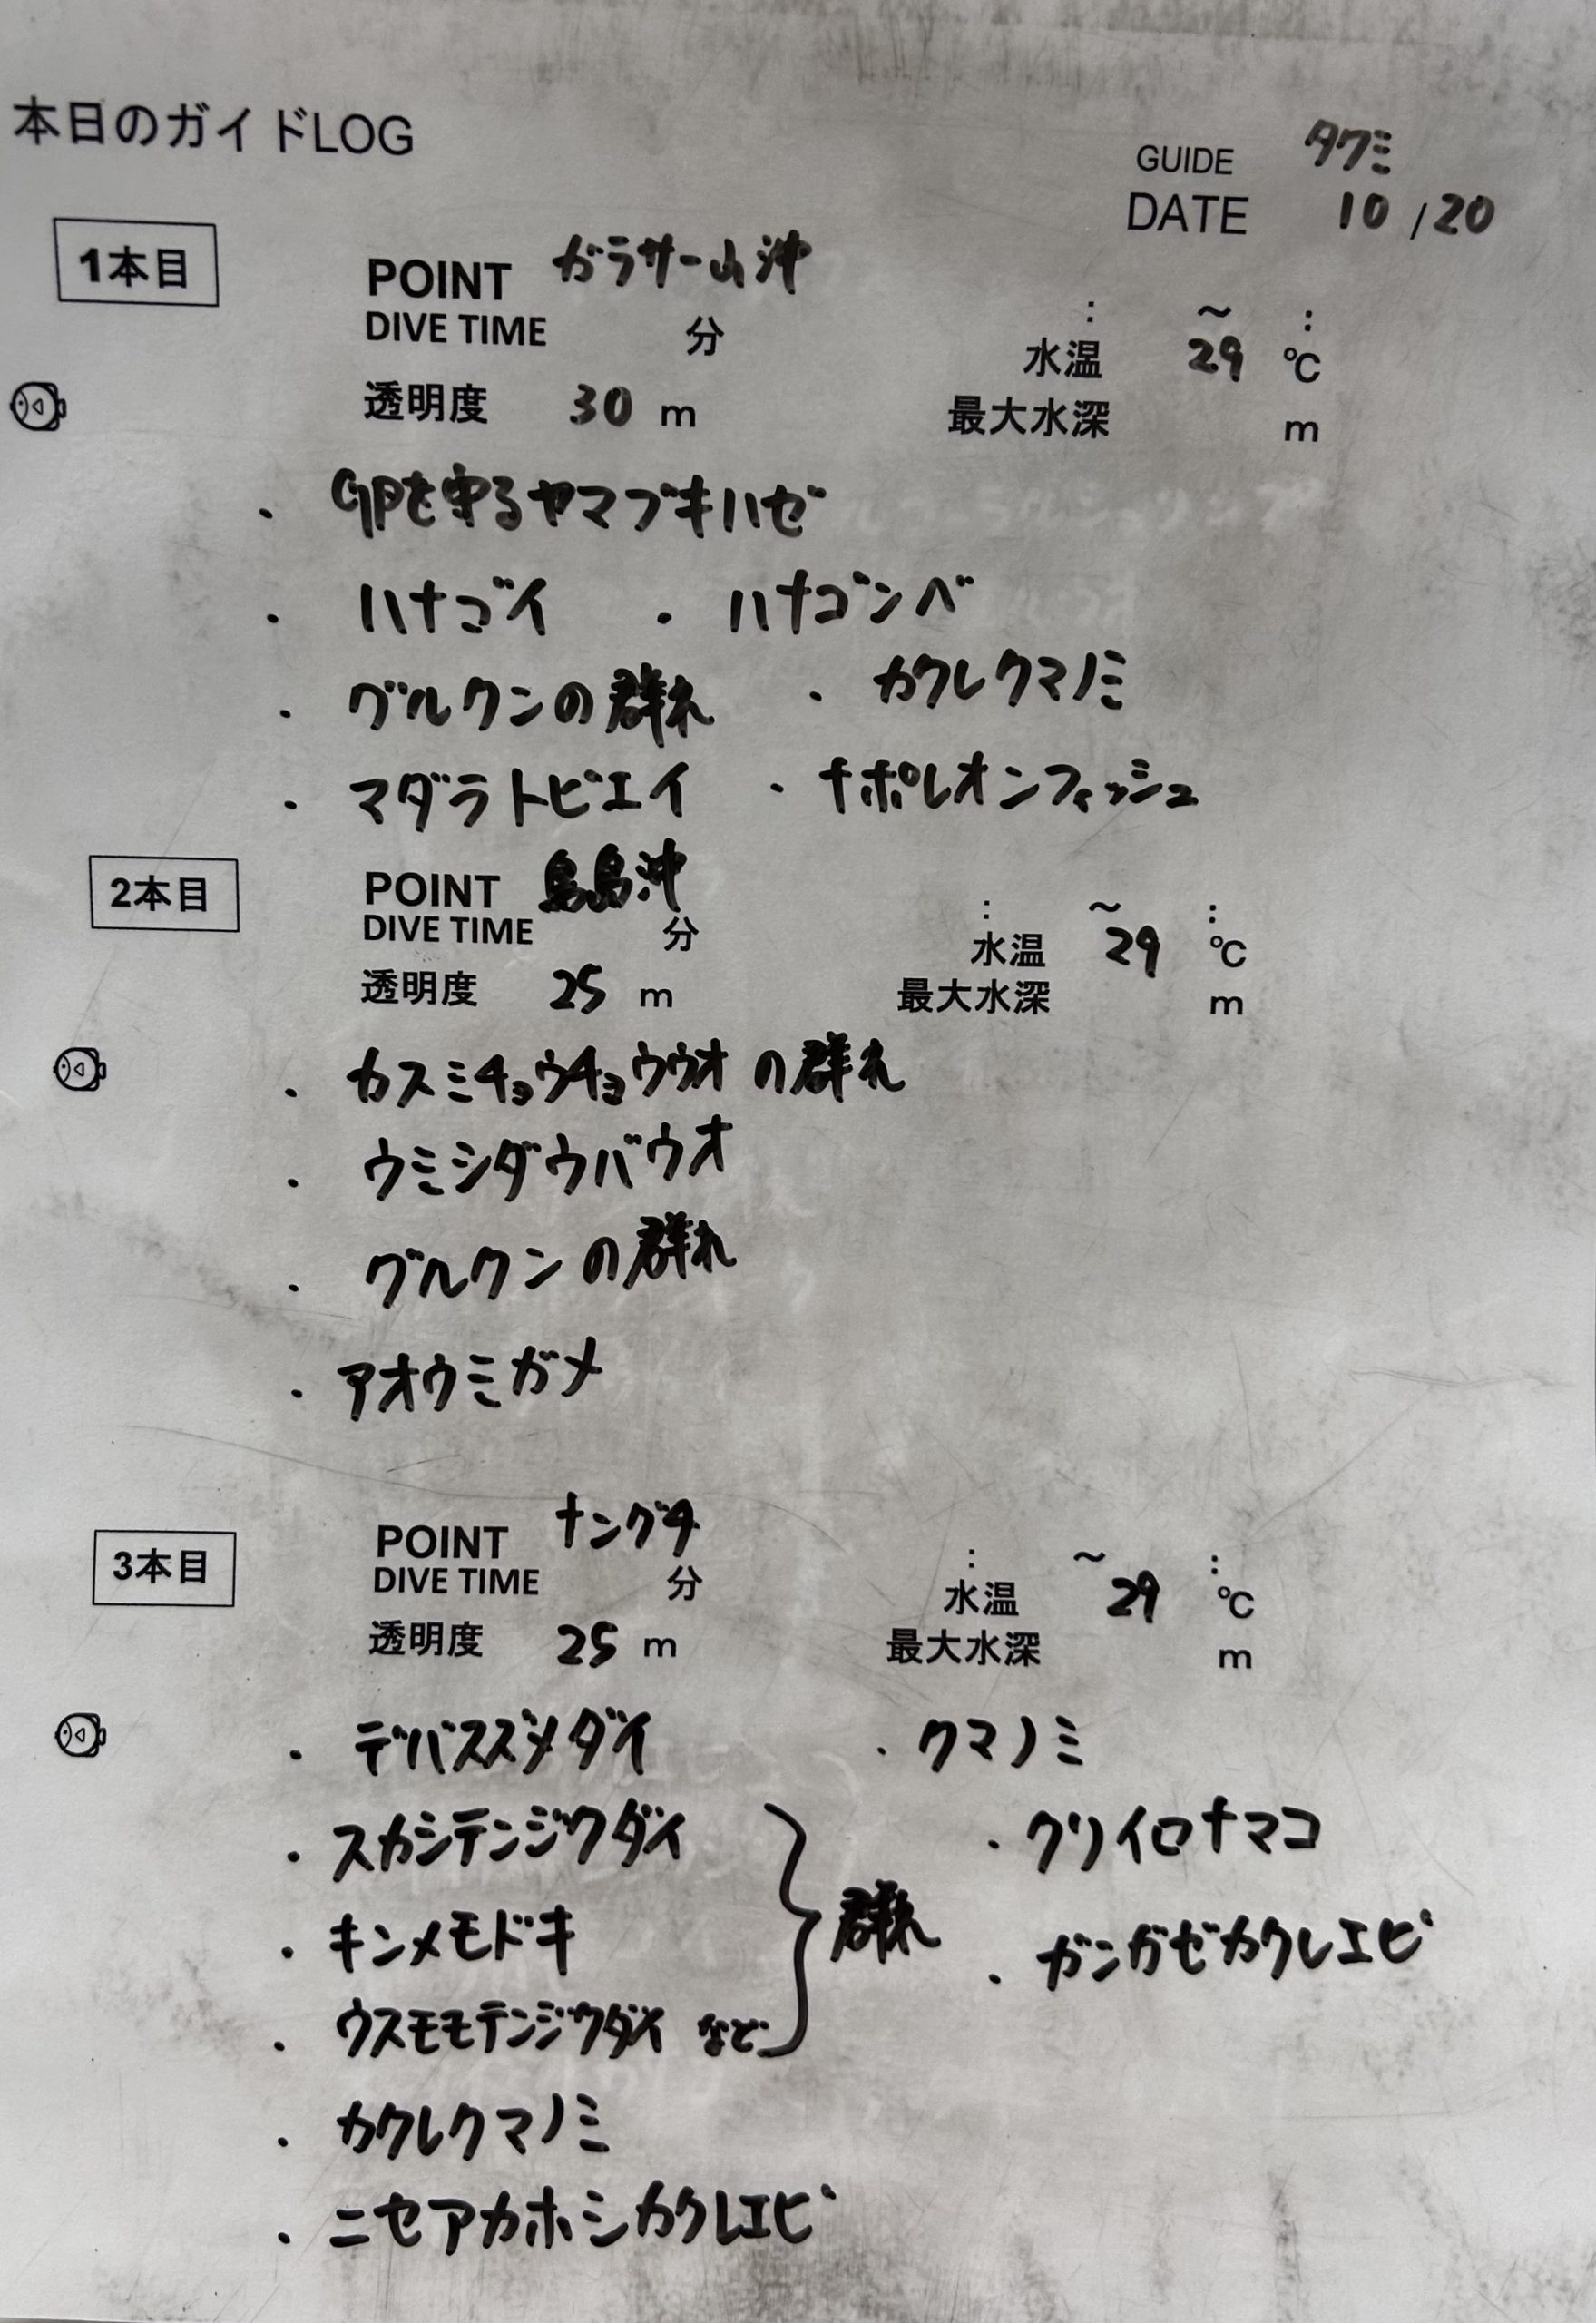 本日のガイドLOG
GUIDE タクミ
DATE 10/20
1本目
POINT ガラサー山沖
DIVE TIME 分 : ～ :
水温 29 ℃
透明度 30 m 最大水深 m
・ GPを守るヤマブキハゼ
・ ハナゴイ ・ ハナゴンベ
・ グルクンの群れ ・ カクレクマノミ
・ マダラトビエイ ・ ナポレオンフィッシュ
2本目
POINT 烏島沖
DIVE TIME 分 : ～ :
水温 29 ℃
透明度 25 m 最大水深 m
・ カスミチョウチョウウオの群れ
・ ウミシダウバウオ
・ グルクンの群れ
・ アオウミガメ
3本目
POINT ナングチ
DIVE TIME 分 : ～ :
水温 29 ℃
透明度 25 m 最大水深 m
・ デバスズメダイ ・ クマノミ
・ スカシテンジクダイ ・ クリイロナマコ
・ キンメモドキ 群れ
・ ガンガゼカクレエビ
・ ウスモモテンジクダイ など
・ カクレクマノミ
・ ニセアカホシカクレエビ